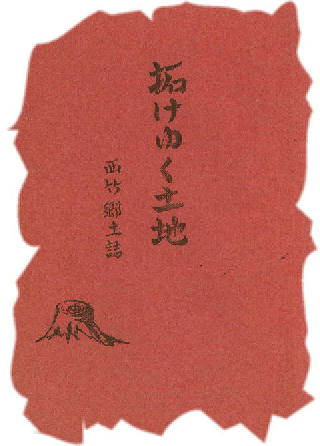 拓けゆく土地
西竹郷土誌